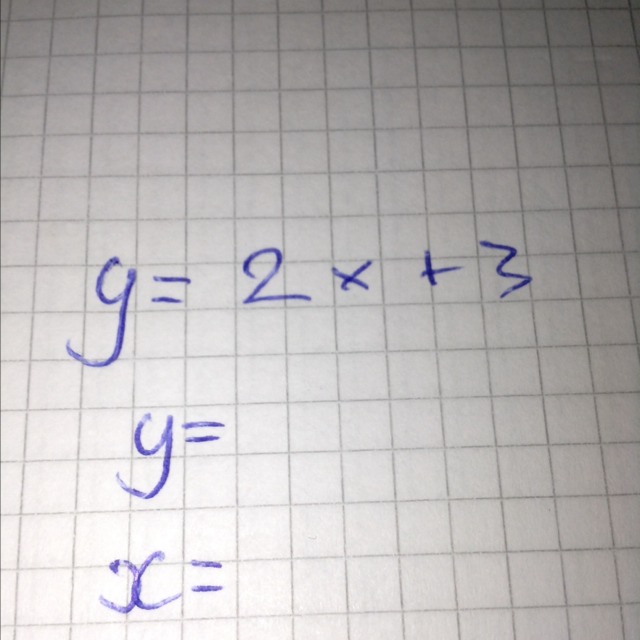 y = 2x + 3
y =
x =